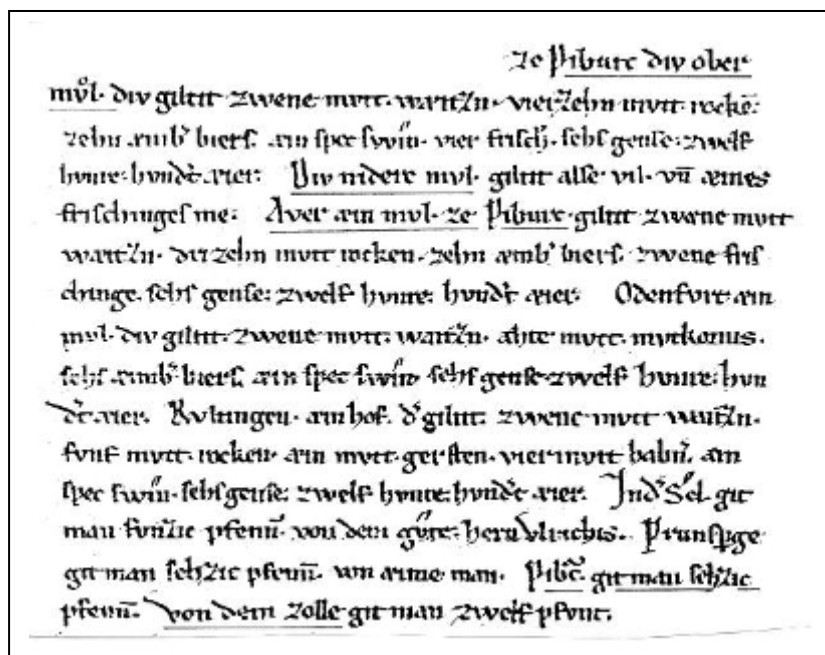 ze Piburc div ober
mvͦl· div giltit zwene mvtt· waitzn· vierzehn mvtt rocke͂·
zehn æmb͛ biers· æin spec swin· vier frisch͛· sehs gense· zwelf
hvnre· hvnd͛t æier· Div nidere mvl· giltit alse vil· vn̄ æines
frischinges me· Aver æin mvl· ze Piburc· giltit zwene mvtt
waitzn· drizehn mvtt rocken· zehn æmb͛ biers· zwene fris
chinge· sehs gense· zwelf hvnre· hvnd͛t æier· Odenfvrt æin
mvl· div giltit· zwene mvtt· waitzn· ahte mvtt·
sehs æmb͛ biers· æin spec swin· sehs gense· zwelf hvnre· hvn
d͛t æier· æin hof· d͛ giltit· zwene mvtt waitzn·
fvnf mvtt· rocken· æin mvtt· gersten· vier mvtt habn̄· æin
spec swin· sehs gense· zwelf hvnre· hvnd͛t æier· git
man fvnzic pfenn̄· von dem gvͦte· hern Vlrichis·
git man sehzic pfenn̄· von æime man· Pibc̄· git man sehzic
pfenn̄· von dem zolle git man zwelf pfvnt·